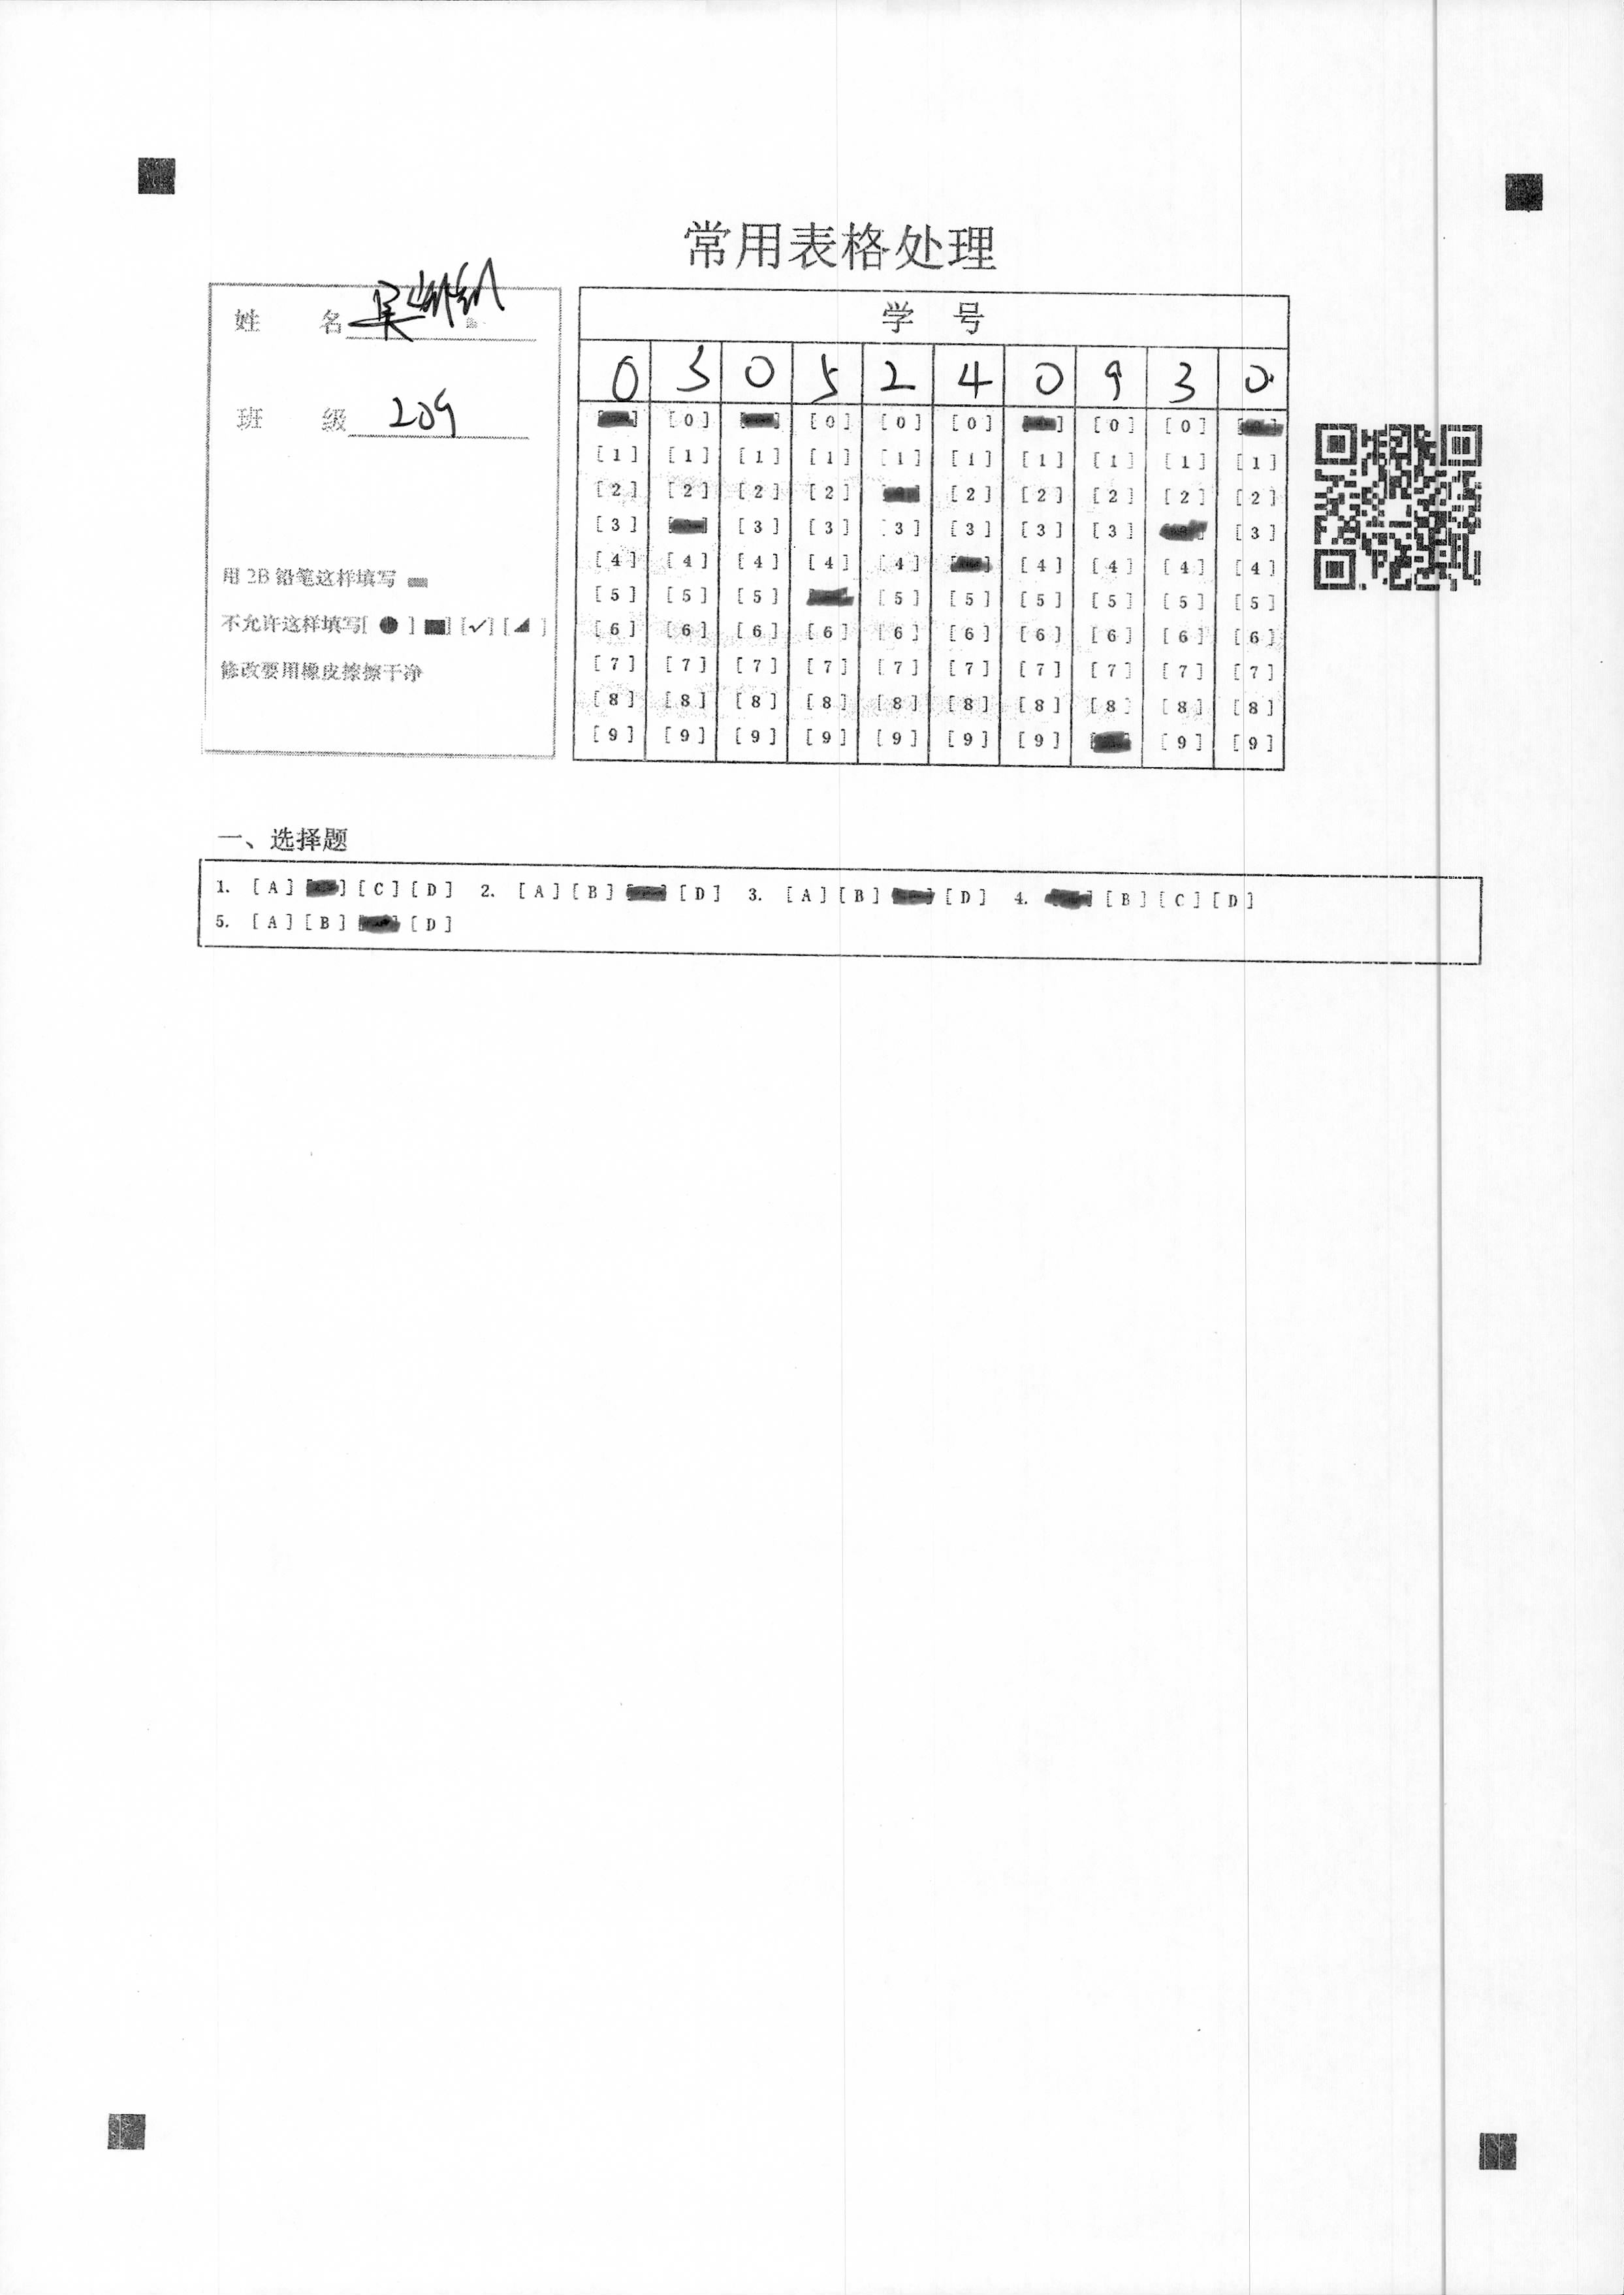 常用表格处理
姓 名
班 级 209
用 2B 铅笔这样填写
不允许这样填写[ ● ] [■] [✓] [◢ ]
修改要用橡皮擦擦干净
学 号
0 3 0 5 2 4 0 9 3 0
[0] [0] [0] [0] [0] [0]
[1] [1] [1] [1] [1] [1] [1] [1] [1] [1]
[2] [2] [2] [2] [2] [2] [2] [2] [2]
[3] [3] [3] [3] [3] [3] [3] [3]
[4] [4] [4] [4] [4] [4] [4] [4] [4]
[5] [5] [5] [5] [5] [5] [5] [5] [5]
[6] [6] [6] [6] [6] [6] [6] [6] [6] [6]
[7] [7] [7] [7] [7] [7] [7] [7] [7] [7]
[8] [8] [8] [8] [8] [8] [8] [8] [8] [8]
[9] [9] [9] [9] [9] [9] [9] [9] [9]
一、选择题
1. [A] [C] [D] 2. [A] [B] [D] 3. [A] [B] [D] 4. [B] [C] [D]
5. [A] [B] [D]